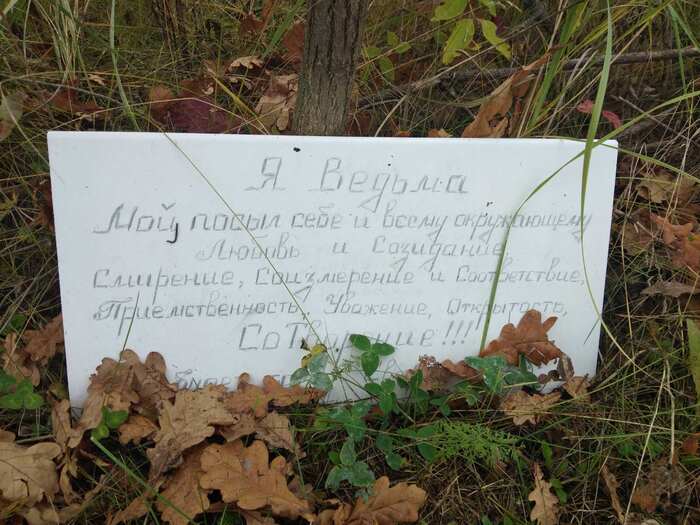 Я Ведьма
Мой посыл себе и всему окружающему
Любовь и Созидание,
Смирение, Соизмерение и Соответствие,
Приемственность, Уважение, Открытость,
СоТворение!!!